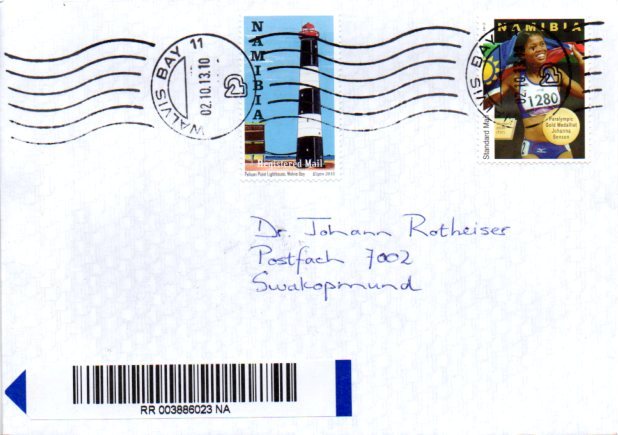 WALVIS BAY 11
02.10.13.10
2
NAMIBIA
Registered Mail
Pelican Point Lighthouse, Walvis Bay
NAMIBIA
WALVIS BAY
02.10.
2
1280
Standard Mail
Paralympic
Gold Medallist
Johanna
Benson
Dr. Johann Rotheiser
Postfach 7002
Swakopmund
RR 003886023 NA